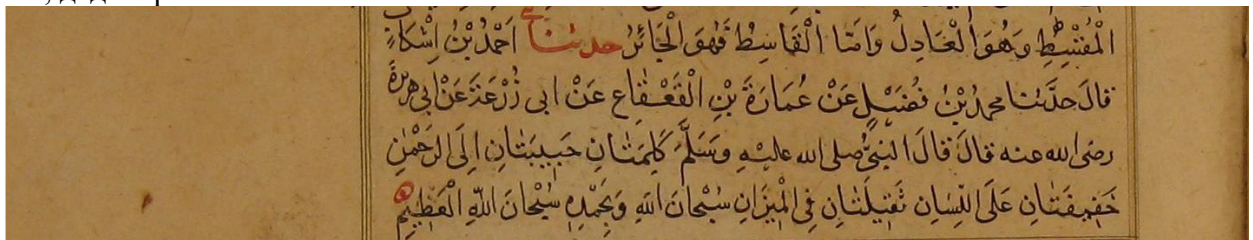 الْمُقْسِطِ وَهُوَ الْعَادِلُ وَاَمَّا الْقَاسِطُ فَهُوَ الْجَائِرُ حدثنا اَحْمَدُ بْنُ اِشْكَابٍ
قالَ حَدَّثَنا محمدُ بْنُ فُضَيْلٍ عَنْ عُمَارَةَ بْنِ الْقَعْقَاعِ عَنْ ابى زُرْعَةَ عَنْ ابى هريرةَ
رضى الله عنه قالَ قالَ النبىُّ صلى الله عليْهِ وَسَلَّمَ كَلِمَتَانِ حَبِيبَتَانِ اِلَى الرَحْمٰنِ
خَفِيفَتَانِ عَلَى اللِّسَانِ ثَقِيلَتَانِ فِى الْمِيزَانِ سُبْحَانَ اللهِ وَبِحَمْدِهِ سُبْحَانَ اللهِ الْعَظِيمِ